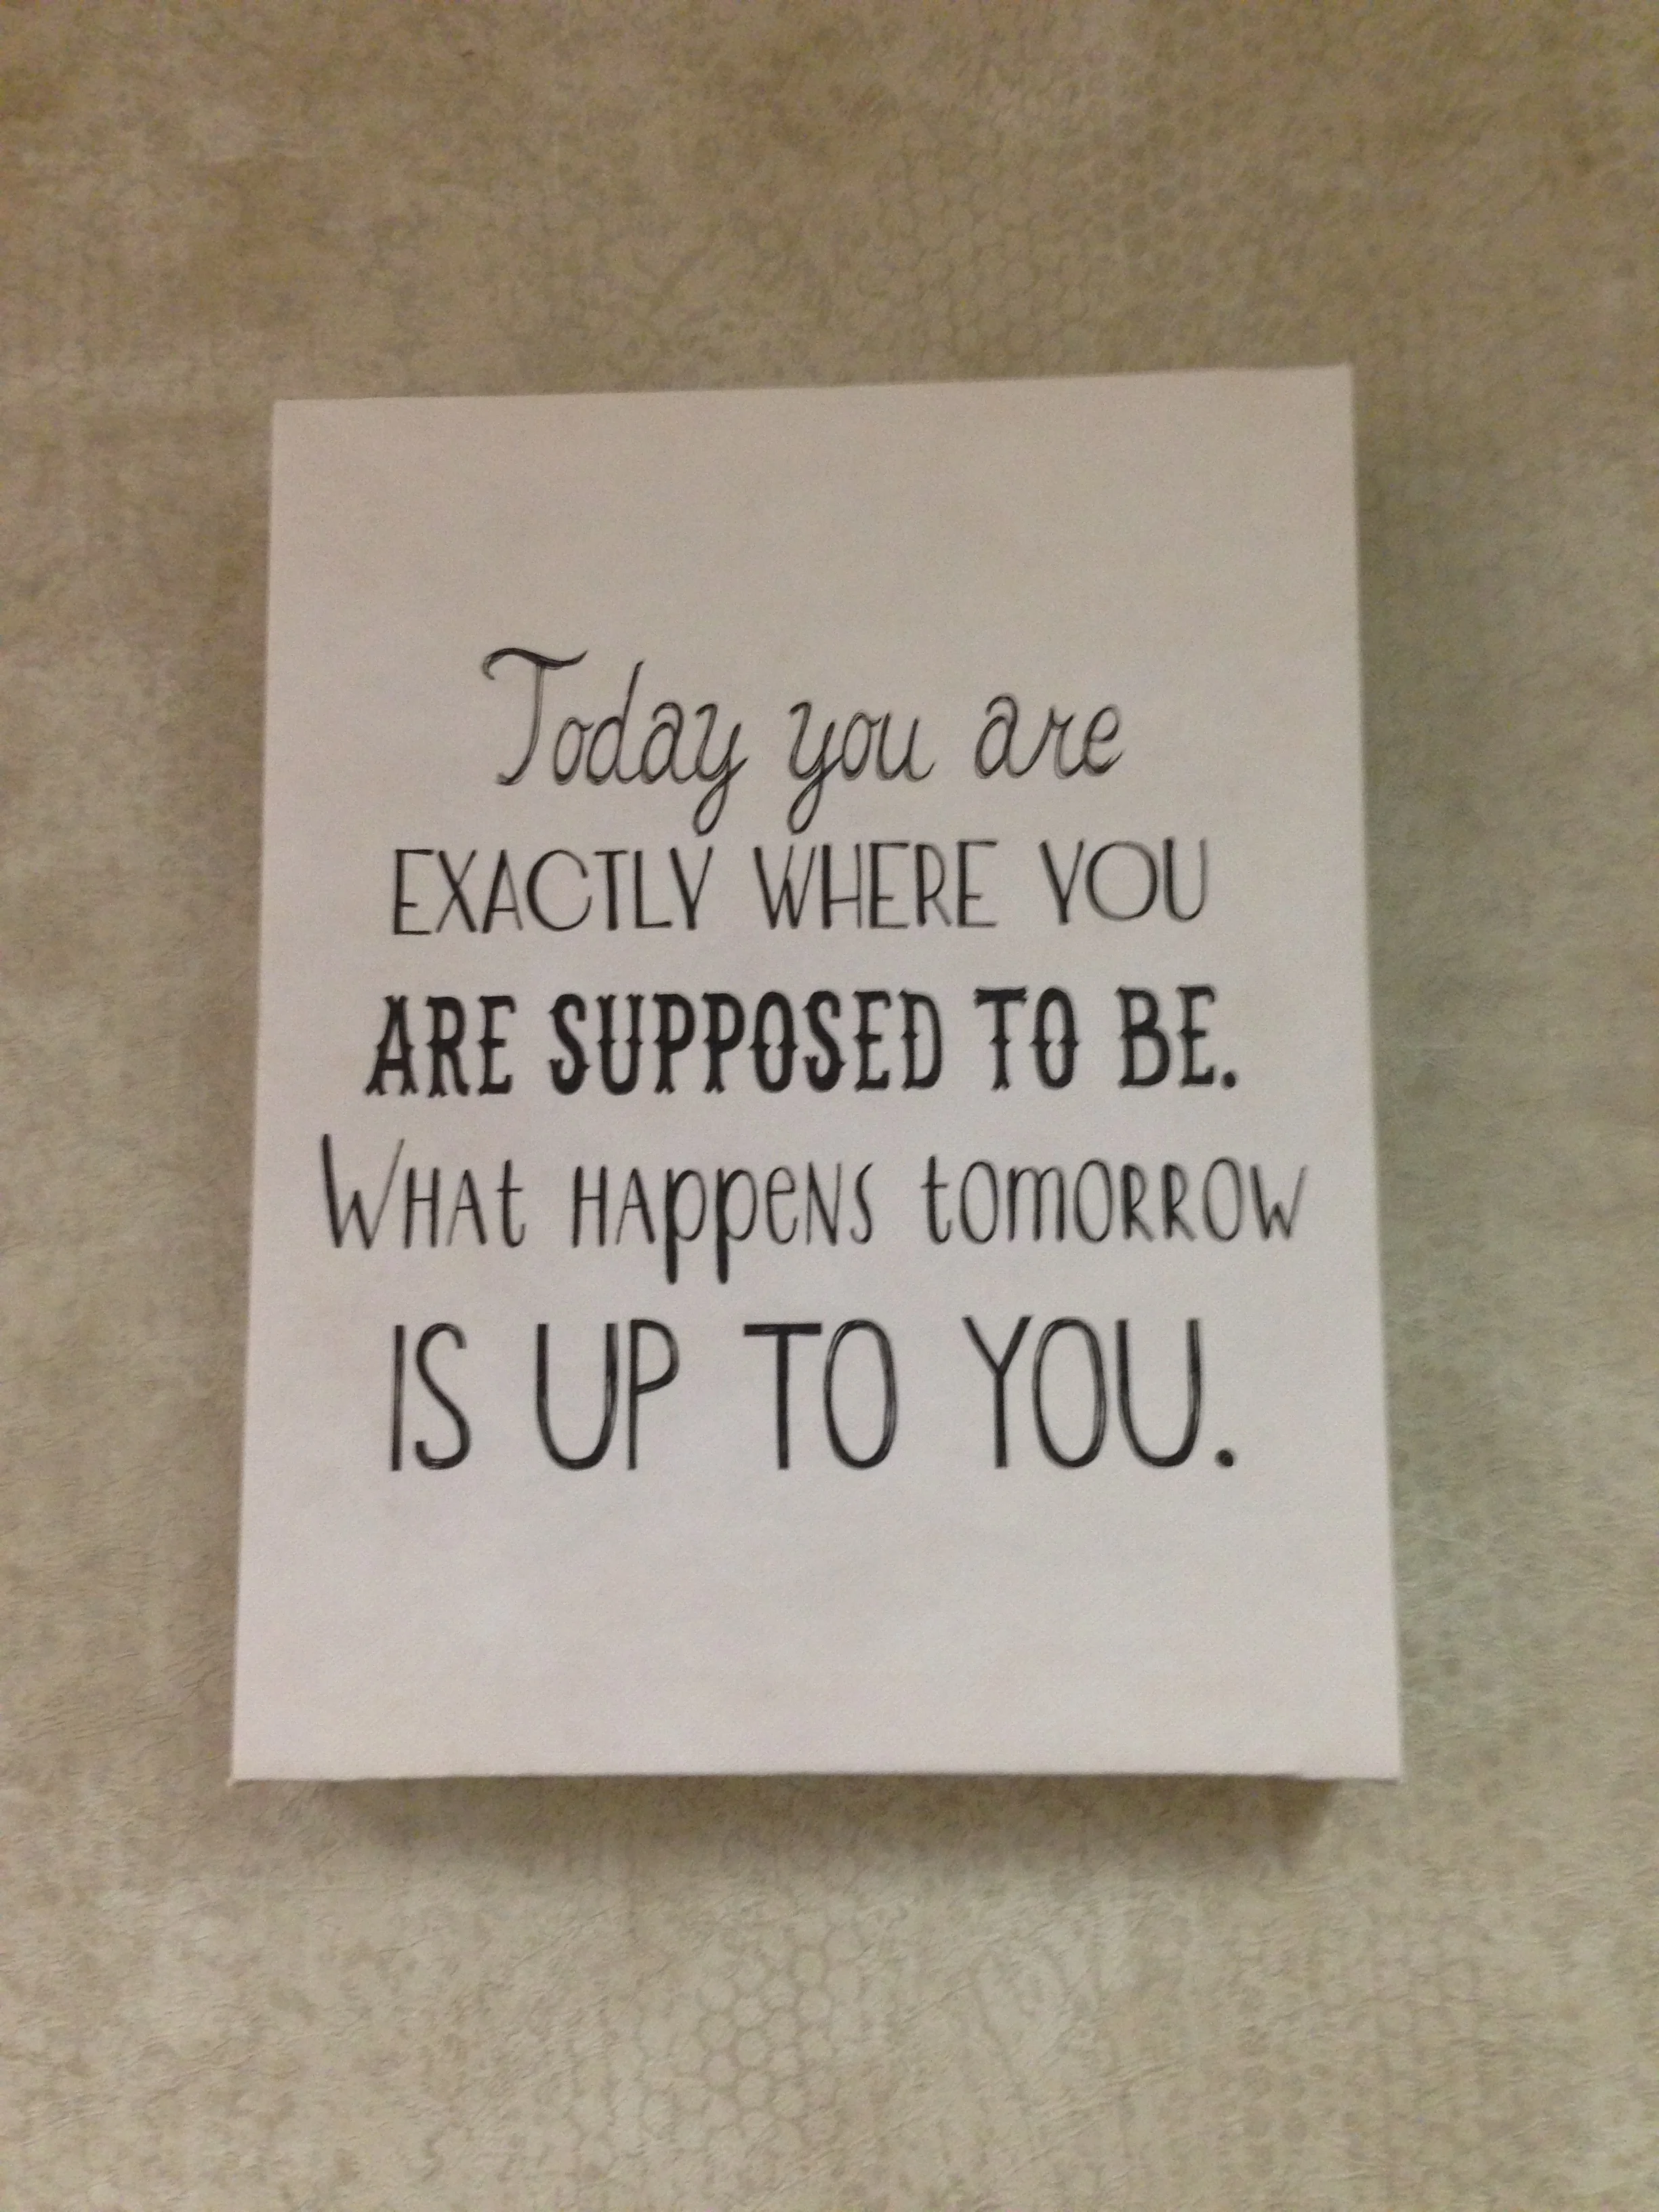 Today you are
EXACTLY WHERE YOU
ARE SUPPOSED TO BE.
WHAt HAppeNS tomoRROW
IS UP TO YOU.